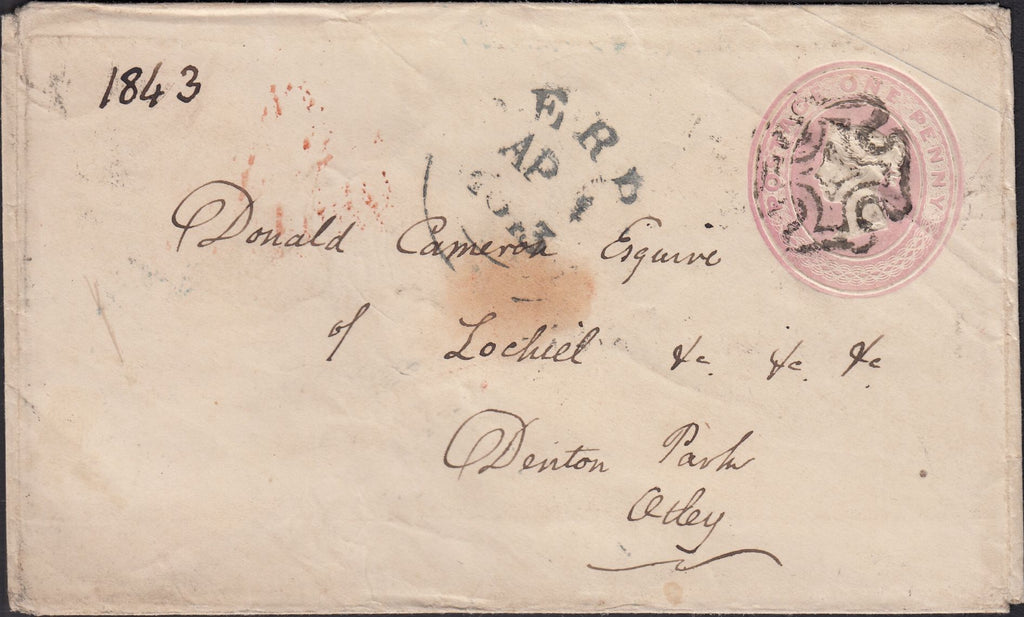 1843
POSTAGE ONE PENNY
AP
Donald Cameron Esquire
of Lochiel &c. &c. &c
Denton Park
Otley